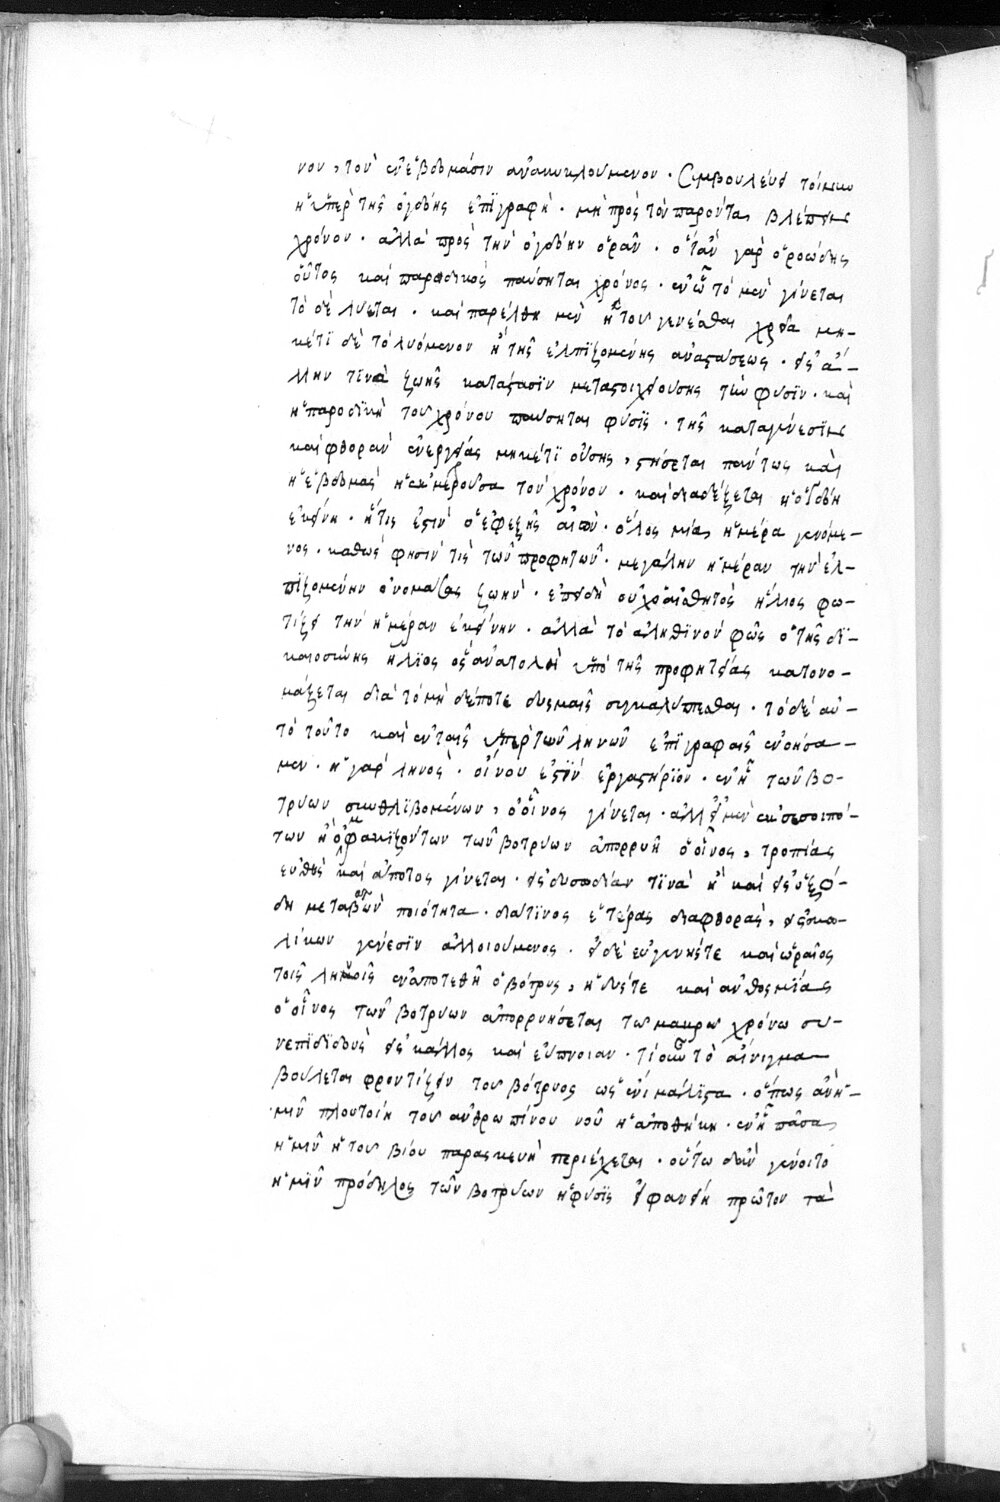 νον, τὸν ἐν ἑβδομάσιν ἀνακυκλούμενον. Συμβουλεύει τοίνυν
ἡ ὑπὲρ τῆς ὀγδόης ἐπιγραφὴ. μὴ πρὸς τὸν παρόντα βλέπειν
χρόνον. ἀλλὰ πρὸς τὴν ὀγδόην ὁρᾶν. ὅταν γὰρ ὁ ῥοώδης
οὗτος καὶ παροδικὸς παύσηται χρόνος. ἐν ᾧ τὸ μὲν γίνεται
τὸ δὲ λύεται. καὶ παρέλθῃ μὲν ἡ τοῦ γενέσθαι χρεία μη-
κέτι δὲ τὸ λυόμενον ᾖ τῆς ἐλπιζομένης ἀναστάσεως. εἰς ἄλ-
λην τινὰ ζωῆς κατάστασιν μεταστοιχειούσης τὴν φύσιν. καὶ
ἡ παροδικὴ τοῦ χρόνου παύσηται φύσις. τῆς κατὰ γένεσιν
καὶ φθορὰν ἐνεργείας μηκέτι οὔσης, στήσεται πάντως καὶ
ἡ ἑβδομὰς ἡ ἐκμεροῦσα τὸν χρόνον. καὶ διαδέξεται ἡ ὀγδόη
ἐκείνη. ἥτις ἐστὶν ὁ ἐφεξῆς αἰὼν. ὅλος μία ἡμέρα γενόμε-
νος. καθὼς φησίν τὶς τῶν προφητῶν. μεγάλην ἡμέραν τὴν ἐλ-
πιζομένην ὀνομάζας ζωὴν. ἐπειδὴ οὐχ ὁ αἰσθητὸς ἥλιος φω-
τίζει τὴν ἡμέραν ἐκείνην. ἀλλὰ τὸ ἀληθινόν φῶς ὁ τῆς δι-
καιοσύνης ἥλιος ὃς ἀνατολὴ ὑπὸ τῆς προφητείας κατονο-
μάζεται διὰ τὸ μὴ δέποτε δυσμαῖς συγκαλύπτεσθαι. τὸ δὲ αὐ-
τὸ τοῦτο καὶ ἐν ταῖς ὑπὲρ τῶν ληνῶν ἐπιγραφαῖς ἐνοήσα-
μεν. ἡ γὰρ ληνὸς. οἴνου ἐστὶν ἐργαστήριον. ἐν ᾗ τῶν βο-
τρύων συνθλιβομένων, ὁ οἶνος γίνεται. ἀλλ' εἰ μὲν ἐκ σεσοιπό-
των ἢ ὀμφακιζόντων τῶν βοτρύων ἀπορρυῇ ὁ οἶνος, τροπίας
εὐθὺς καὶ ἄποτος γίνεται. εἰς δυσωδίαν τινὰ ἢ καὶ εἰς ὀξώ-
δη μεταβὰς ποιότητα. διά τινος ἑτέρας διαφθορὰς, εἰς σκω-
λίκων γένεσιν ἀλλοιούμενος. εἰ δὲ εὐγενής τε καὶ ὡραῖος
τοῖς ληνοῖς ἐναποτεθῇ ὁ βότρυς, ἡδύς τε καὶ ἀνθοσμίας
ὁ οἶνος τῶν βοτρύων ἀπορρυήσεται τῷ μακρῷ χρόνῳ συ-
νεπιδιδοὺς εἰς κάλλος καὶ εὔπνοιαν. τί οὖν τὸ αἴνιγμα
βούλεται φροντίζειν τοῦ βότρυος ὡς ἔνι μάλιστα. ὅπως ἂν ἡ-
μῖν πλουτοίη τοῦ ἀνθρωπίνου νοῦ ἡ ἀποθήκη. ἐν ᾗ πᾶσα
ἡμῖν ἡ τοῦ βίου παρασκευὴ περιέχεται. οὕτω δ' ἂν γένοιτο
ἡμῖν πρόδηλος τῶν βοτρύων ἡ φύσις εἰ φανείη πρῶτον τὰ